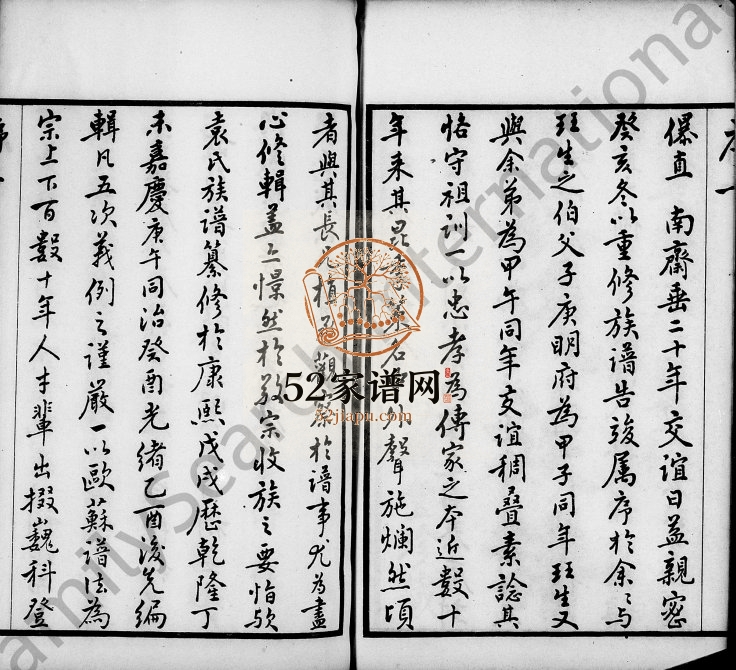 序一
儤直 南齋垂二十年交誼日益親密
癸亥冬以重修族譜告竣属序於余余与
珏生之伯父子庚明府為甲子同年珏生又
與余弟為甲午同年交誼稠疊素諗其
恪守祖訓一以忠孝為傳家之本近數十
年来其昆季名外聲施爛然頃
者與其長於譜事尤為盡
心修輯盖亦憬然於敬宗收族之要怡歟
袁氏族譜纂修於康熙戊戌歷乾隆丁
未嘉慶庚午同治癸酉光緒乙酉後先編
輯凡五次義例之謹嚴一以歐蘇譜法為
宗上下百數十年人才輩出掇巍科登
序一
52家谱网
52jiapu.com
FamilySearch International